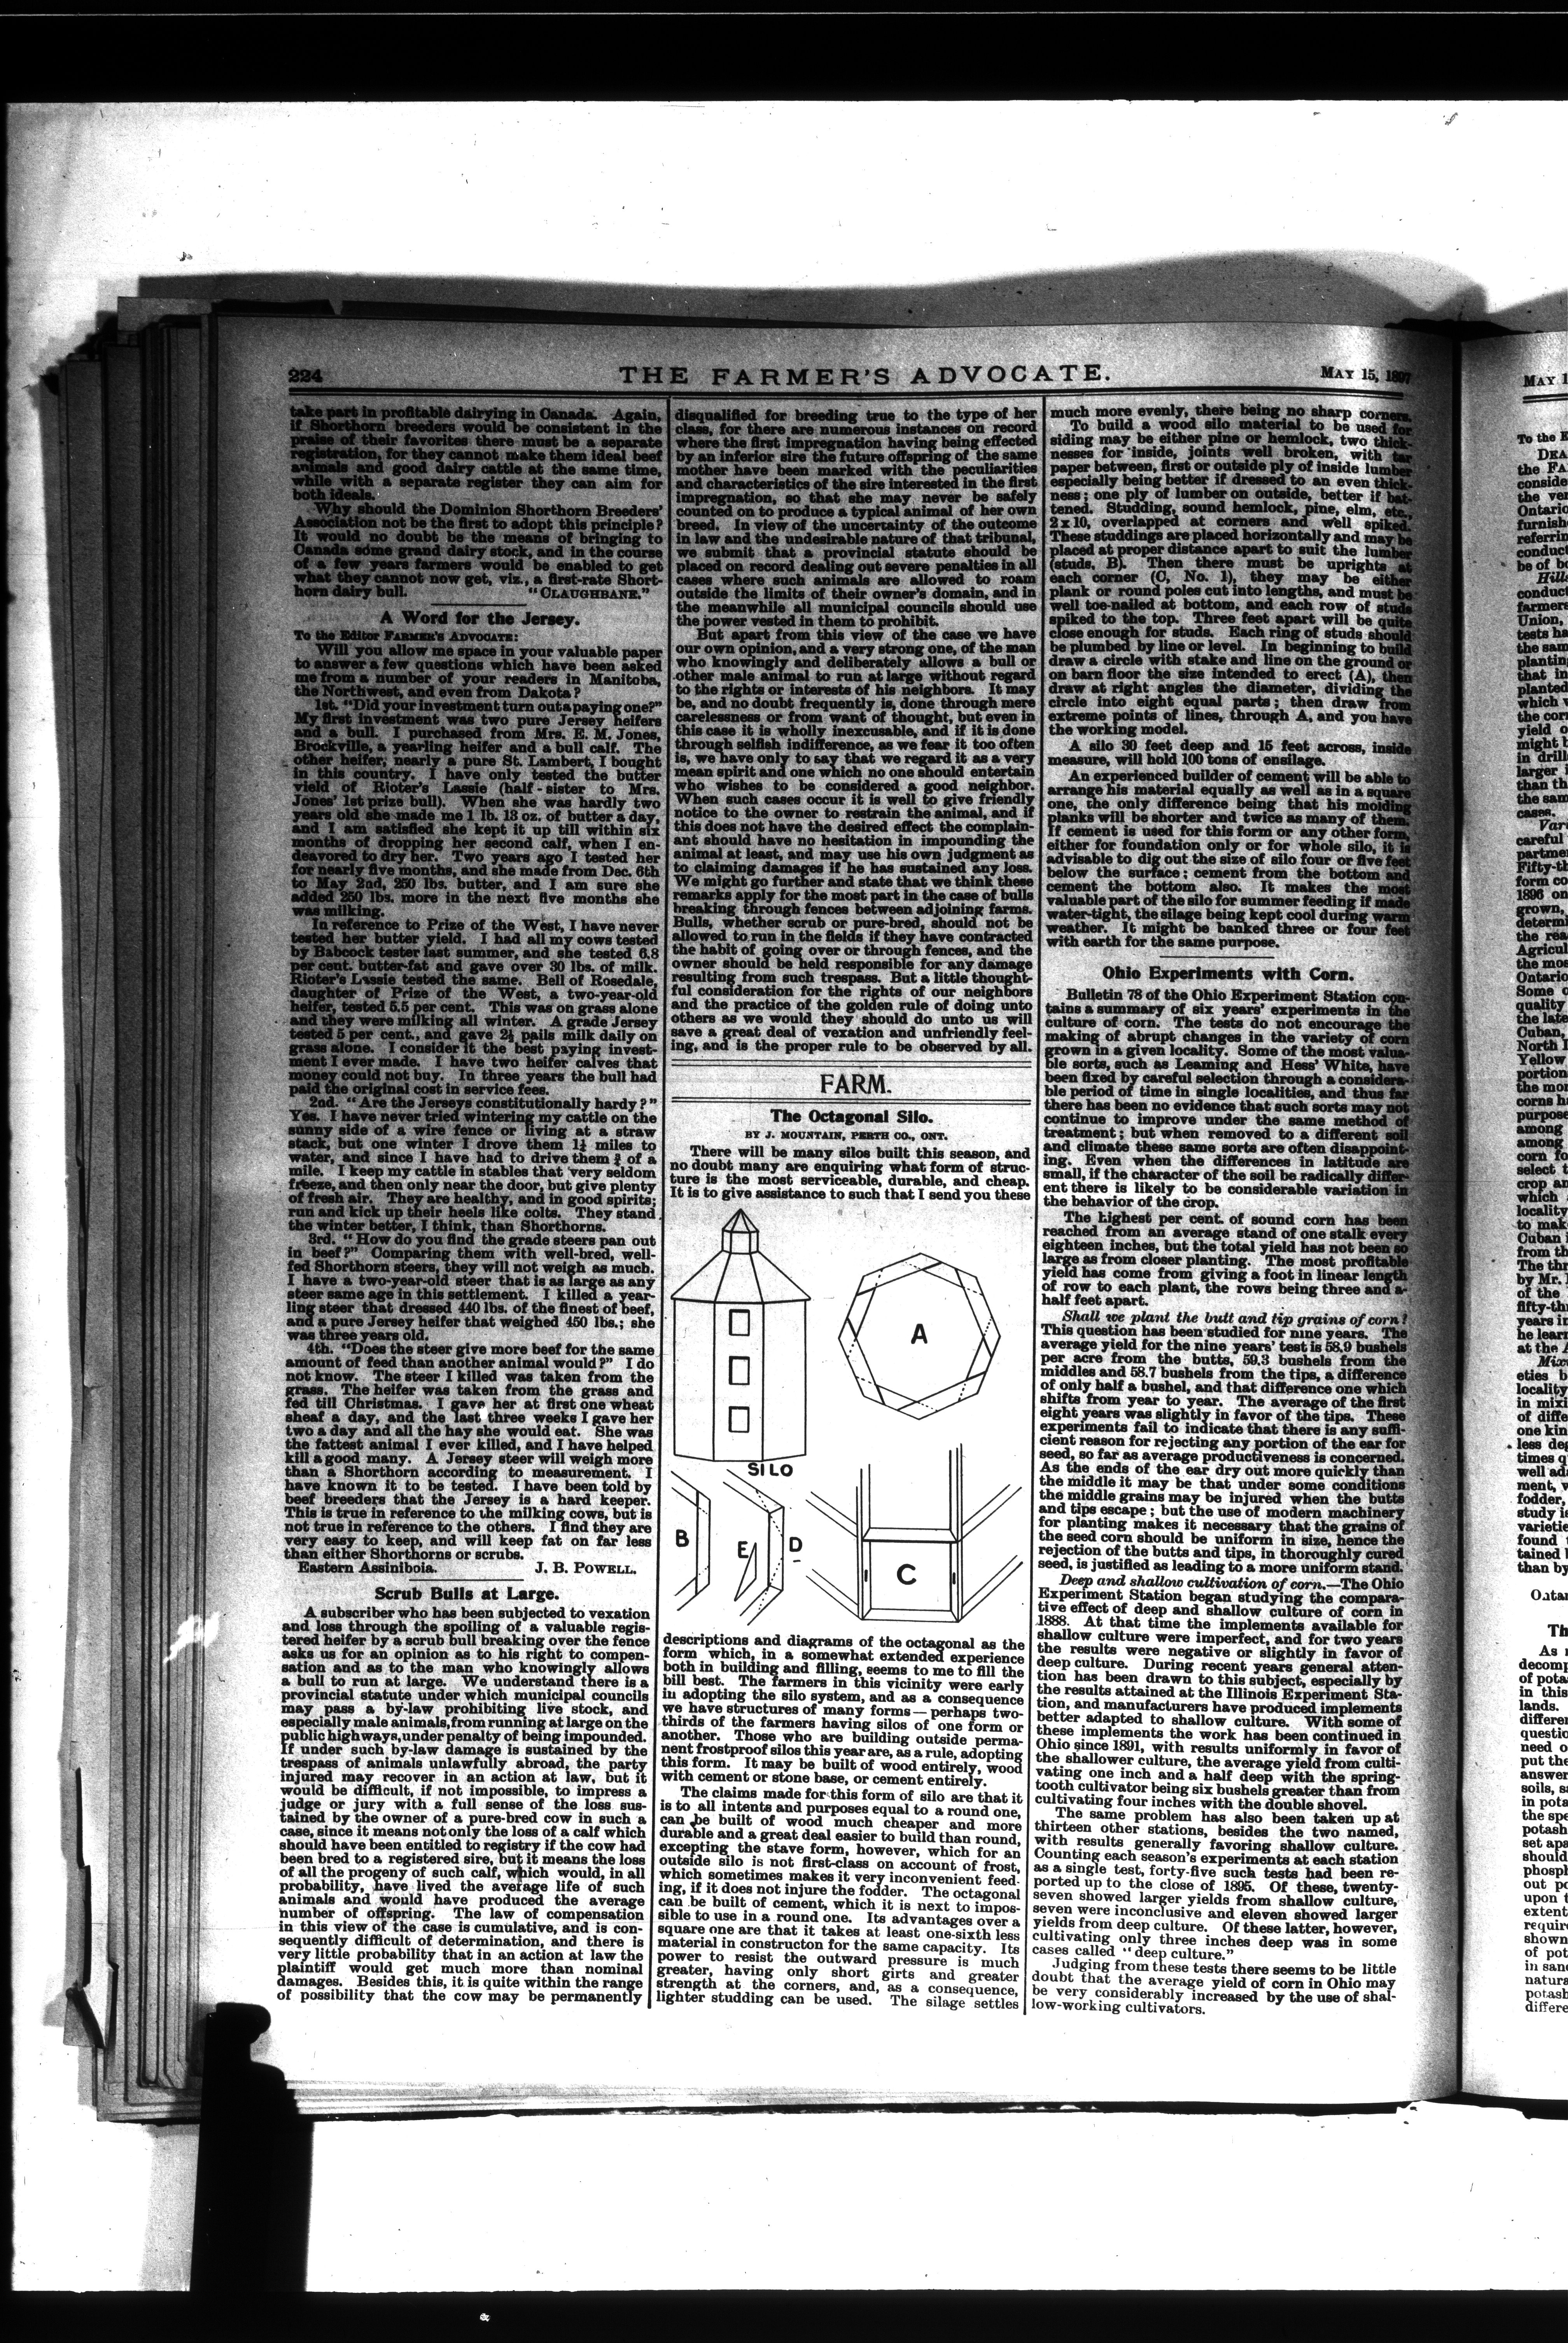 224
THE FARMER'S ADVOCATE.
MAY 15, 1897
take part in profitable dairying in Canada. Again,
if Shorthorn breeders would be consistent in the
praise of their favorites there must be a separate
registration, for they cannot make them ideal beef
animals and good dairy cattle at the same time,
while with a separate register they can aim for
both ideals.
Why should the Dominion Shorthorn Breeders'
Association not be the first to adopt this principle?
It would no doubt be the means of bringing to
Canada some grand dairy stock, and in the course
of a few years farmers would be enabled to get
what they cannot now get, viz., a first-rate Short-
horn dairy bull. "CLAUGHBANE."
A Word for the Jersey.
To the Editor FARMER'S ADVOCATE:
Will you allow me space in your valuable paper
to answer a few questions which have been asked
me from a number of your readers in Manitoba,
the Northwest, and even from Dakota?
1st. "Did your investment turn out a paying one?"
My first investment was two pure Jersey heifers
and a bull. I purchased from Mrs. E. M. Jones,
Brockville, a yearling heifer and a bull calf. The
other heifer, nearly a pure St. Lambert, I bought
in this country. I have only tested the butter
yield of Rioter's Lassie (half-sister to Mrs.
Jones' 1st prize bull). When she was hardly two
years old she made me 1 lb. 13 oz. of butter a day,
and I am satisfied she kept it up till within six
months of dropping her second calf, when I en-
deavored to dry her. Two years ago I tested her
for nearly five months, and she made from Dec. 6th
to May 2nd, 250 lbs. butter, and I am sure she
added 250 lbs. more in the next five months she
was milking.
In reference to Prize of the West, I have never
tested her butter yield. I had all my cows tested
by Babcock tester last summer, and she tested 6.8
per cent. butter-fat and gave over 30 lbs. of milk.
Rioter's Lassie tested the same. Bell of Rosedale,
daughter of Prize of the West, a two-year-old
heifer, tested 5.5 per cent. This was on grass alone
and they were milking all winter. A grade Jersey
tested 5 per cent., and gave 2½ pails milk daily on
grass alone. I consider it the best paying invest-
ment I ever made. I have two heifer calves that
money could not buy. In three years the bull had
paid the original cost in service fees.
2nd. "Are the Jerseys constitutionally hardy?"
Yes. I have never tried wintering my cattle on the
sunny side of a wire fence or living at a straw
stack, but one winter I drove them 1½ miles to
water, and since I have had to drive them ¾ of a
mile. I keep my cattle in stables that very seldom
freeze, and then only near the door, but give plenty
of fresh air. They are healthy, and in good spirits;
run and kick up their heels like colts. They stand
the winter better, I think, than Shorthorns.
3rd. "How do you find the grade steers pan out
in beef?" Comparing them with well-bred, well-
fed Shorthorn steers, they will not weigh as much.
I have a two-year-old steer that is as large as any
steer same age in this settlement. I killed a year-
ling steer that dressed 440 lbs. of the finest of beef,
and a pure Jersey heifer that weighed 450 lbs.; she
was three years old.
4th. "Does the steer give more beef for the same
amount of feed than another animal would?" I do
not know. The steer I killed was taken from the
grass. The heifer was taken from the grass and
fed till Christmas. I gave her at first one wheat
sheaf a day, and the last three weeks I gave her
two a day and all the hay she would eat. She was
the fattest animal I ever killed, and I have helped
kill a good many. A Jersey steer will weigh more
than a Shorthorn according to measurement. I
have known it to be tested. I have been told by
beef breeders that the Jersey is a hard keeper.
This is true in reference to the milking cows, but is
not true in reference to the others. I find they are
very easy to keep, and will keep fat on far less
than either Shorthorns or scrubs.
Eastern Assiniboia. J. B. POWELL.
Scrub Bulls at Large.
A subscriber who has been subjected to vexation
and loss through the spoiling of a valuable regis-
tered heifer by a scrub bull breaking over the fence
asks us for an opinion as to his right to compen-
sation and as to the man who knowingly allows
a bull to run at large. We understand there is a
provincial statute under which municipal councils
may pass a by-law prohibiting live stock, and
especially male animals, from running at large on the
public highways, under penalty of being impounded.
If under such by-law damage is sustained by the
trespass of animals unlawfully abroad, the party
injured may recover in an action at law, but it
would be difficult, if not impossible, to impress a
judge or jury with a full sense of the loss sus-
tained by the owner of a pure-bred cow in such a
case, since it means not only the loss of a calf which
should have been entitled to registry if the cow had
been bred to a registered sire, but it means the loss
of all the progeny of such calf, which would, in all
probability, have lived the average life of such
animals and would have produced the average
number of offspring. The law of compensation
in this view of the case is cumulative, and is con-
sequently difficult of determination, and there is
very little probability that in an action at law the
plaintiff would get much more than nominal
damages. Besides this, it is quite within the range
of possibility that the cow may be permanently
disqualified for breeding true to the type of her
class, for there are numerous instances on record
where the first impregnation having being effected
by an inferior sire the future offspring of the same
mother have been marked with the peculiarities
and characteristics of the sire interested in the first
impregnation, so that she may never be safely
counted on to produce a typical animal of her own
breed. In view of the uncertainty of the outcome
in law and the undesirable nature of that tribunal,
we submit that a provincial statute should be
placed on record dealing out severe penalties in all
cases where such animals are allowed to roam
outside the limits of their owner's domain, and in
the meanwhile all municipal councils should use
the power vested in them to prohibit.
But apart from this view of the case we have
our own opinion, and a very strong one, of the man
who knowingly and deliberately allows a bull or
other male animal to run at large without regard
to the rights or interests of his neighbors. It may
be, and no doubt frequently is, done through mere
carelessness or from want of thought, but even in
this case it is wholly inexcusable, and if it is done
through selfish indifference, as we fear it too often
is, we have only to say that we regard it as a very
mean spirit and one which no one should entertain
who wishes to be considered a good neighbor.
When such cases occur it is well to give friendly
notice to the owner to restrain the animal, and if
this does not have the desired effect the complain-
ant should have no hesitation in impounding the
animal at least, and may use his own judgment as
to claiming damages if he has sustained any loss.
We might go further and state that we think these
remarks apply for the most part in the case of bulls
breaking through fences between adjoining farms.
Bulls, whether scrub or pure-bred, should not be
allowed to run in the fields if they have contracted
the habit of going over or through fences, and the
owner should be held responsible for any damage
resulting from such trespass. But a little thought-
ful consideration for the rights of our neighbors
and the practice of the golden rule of doing unto
others as we would they should do unto us will
save a great deal of vexation and unfriendly feel-
ing, and is the proper rule to be observed by all.
FARM.
The Octagonal Silo.
BY J. MOUNTAIN, PERTH CO., ONT.
There will be many silos built this season, and
no doubt many are enquiring what form of struc-
ture is the most serviceable, durable, and cheap.
It is to give assistance to such that I send you these
A
SILO
B
E
D
C
descriptions and diagrams of the octagonal as the
form which, in a somewhat extended experience
both in building and filling, seems to me to fill the
bill best. The farmers in this vicinity were early
in adopting the silo system, and as a consequence
we have structures of many forms—perhaps two-
thirds of the farmers having silos of one form or
another. Those who are building outside perma-
nent frostproof silos this year are, as a rule, adopting
this form. It may be built of wood entirely, wood
with cement or stone base, or cement entirely.
The claims made for this form of silo are that it
is to all intents and purposes equal to a round one,
can be built of wood much cheaper and more
durable and a great deal easier to build than round,
excepting the stave form, however, which for an
outside silo is not first-class on account of frost,
which sometimes makes it very inconvenient feed-
ing, if it does not injure the fodder. The octagonal
can be built of cement, which it is next to impos-
sible to use in a round one. Its advantages over a
square one are that it takes at least one-sixth less
material in constructon for the same capacity. Its
power to resist the outward pressure is much
greater, having only short girts and greater
strength at the corners, and, as a consequence,
lighter studding can be used. The silage settles
much more evenly, there being no sharp corners.
To build a wood silo material to be used for
siding may be either pine or hemlock, two thick-
nesses for inside, joints well broken, with tar
paper between, first or outside ply of inside lumber
especially being better if dressed to an even thick-
ness; one ply of lumber on outside, better if bat-
tened. Studding, sound hemlock, pine, elm, etc.,
2x10, overlapped at corners and well spiked.
These studdings are placed horizontally and may be
placed at proper distance apart to suit the lumber
(studs, B). Then there must be uprights at
each corner (C, No. 1), they may be either
plank or round poles cut into lengths, and must be
well toe-nailed at bottom, and each row of studs
spiked to the top. Three feet apart will be quite
close enough for studs. Each ring of studs should
be plumbed by line or level. In beginning to build
draw a circle with stake and line on the ground or
on barn floor the size intended to erect (A), then
draw at right angles the diameter, dividing the
circle into eight equal parts; then draw from
extreme points of lines, through A, and you have
the working model.
A silo 30 feet deep and 15 feet across, inside
measure, will hold 100 tons of ensilage.
An experienced builder of cement will be able to
arrange his material equally as well as in a square
one, the only difference being that his molding
planks will be shorter and twice as many of them.
If cement is used for this form or any other form,
either for foundation only or for whole silo, it is
advisable to dig out the size of silo four or five feet
below the surface; cement from the bottom and
cement the bottom also. It makes the most
valuable part of the silo for summer feeding if made
water-tight, the silage being kept cool during warm
weather. It might be banked three or four feet
with earth for the same purpose.
Ohio Experiments with Corn.
Bulletin 78 of the Ohio Experiment Station con-
tains a summary of six years' experiments in the
culture of corn. The tests do not encourage the
making of abrupt changes in the variety of corn
grown in a given locality. Some of the most valua-
ble sorts, such as Leaming and Hess' White, have
been fixed by careful selection through a considera-
ble period of time in single localities, and thus far
there has been no evidence that such sorts may not
continue to improve under the same method of
treatment; but when removed to a different soil
and climate these same sorts are often disappoint-
ing. Even when the differences in latitude are
small, if the character of the soil be radically differ-
ent there is likely to be considerable variation in
the behavior of the crop.
The highest per cent. of sound corn has been
reached from an average stand of one stalk every
eighteen inches, but the total yield has not been so
large as from closer planting. The most profitable
yield has come from giving a foot in linear length
of row to each plant, the rows being three and a-
half feet apart.
Shall we plant the butt and tip grains of corn?
This question has been studied for nine years. The
average yield for the nine years' test is 58.9 bushels
per acre from the butts, 59.3 bushels from the
middles and 58.7 bushels from the tips, a difference
of only half a bushel, and that difference one which
shifts from year to year. The average of the first
eight years was slightly in favor of the tips. These
experiments fail to indicate that there is any suffi-
cient reason for rejecting any portion of the ear for
seed, so far as average productiveness is concerned.
As the ends of the ear dry out more quickly than
the middle it may be that under some conditions
the middle grains may be injured when the butts
and tips escape; but the use of modern machinery
for planting makes it necessary that the grains of
the seed corn should be uniform in size, hence the
rejection of the butts and tips, in thoroughly cured
seed, is justified as leading to a more uniform stand.
Deep and shallow cultivation of corn.—The Ohio
Experiment Station began studying the compara-
tive effect of deep and shallow culture of corn in
1888. At that time the implements available for
shallow culture were imperfect, and for two years
the results were negative or slightly in favor of
deep culture. During recent years general atten-
tion has been drawn to this subject, especially by
the results attained at the Illinois Experiment Sta-
tion, and manufacturers have produced implements
better adapted to shallow culture. With some of
these implements the work has been continued in
Ohio since 1891, with results uniformly in favor of
the shallower culture, the average yield from culti-
vating one inch and a half deep with the spring-
tooth cultivator being six bushels greater than from
cultivating four inches with the double shovel.
The same problem has also been taken up at
thirteen other stations, besides the two named,
with results generally favoring shallow culture.
Counting each season's experiments at each station
as a single test, forty-five such tests had been re-
ported up to the close of 1895. Of these, twenty-
seven showed larger yields from shallow culture,
seven were inconclusive and eleven showed larger
yields from deep culture. Of these latter, however,
cultivating only three inches deep was in some
cases called "deep culture."
Judging from these tests there seems to be little
doubt that the average yield of corn in Ohio may
be very considerably increased by the use of shal-
low-working cultivators.